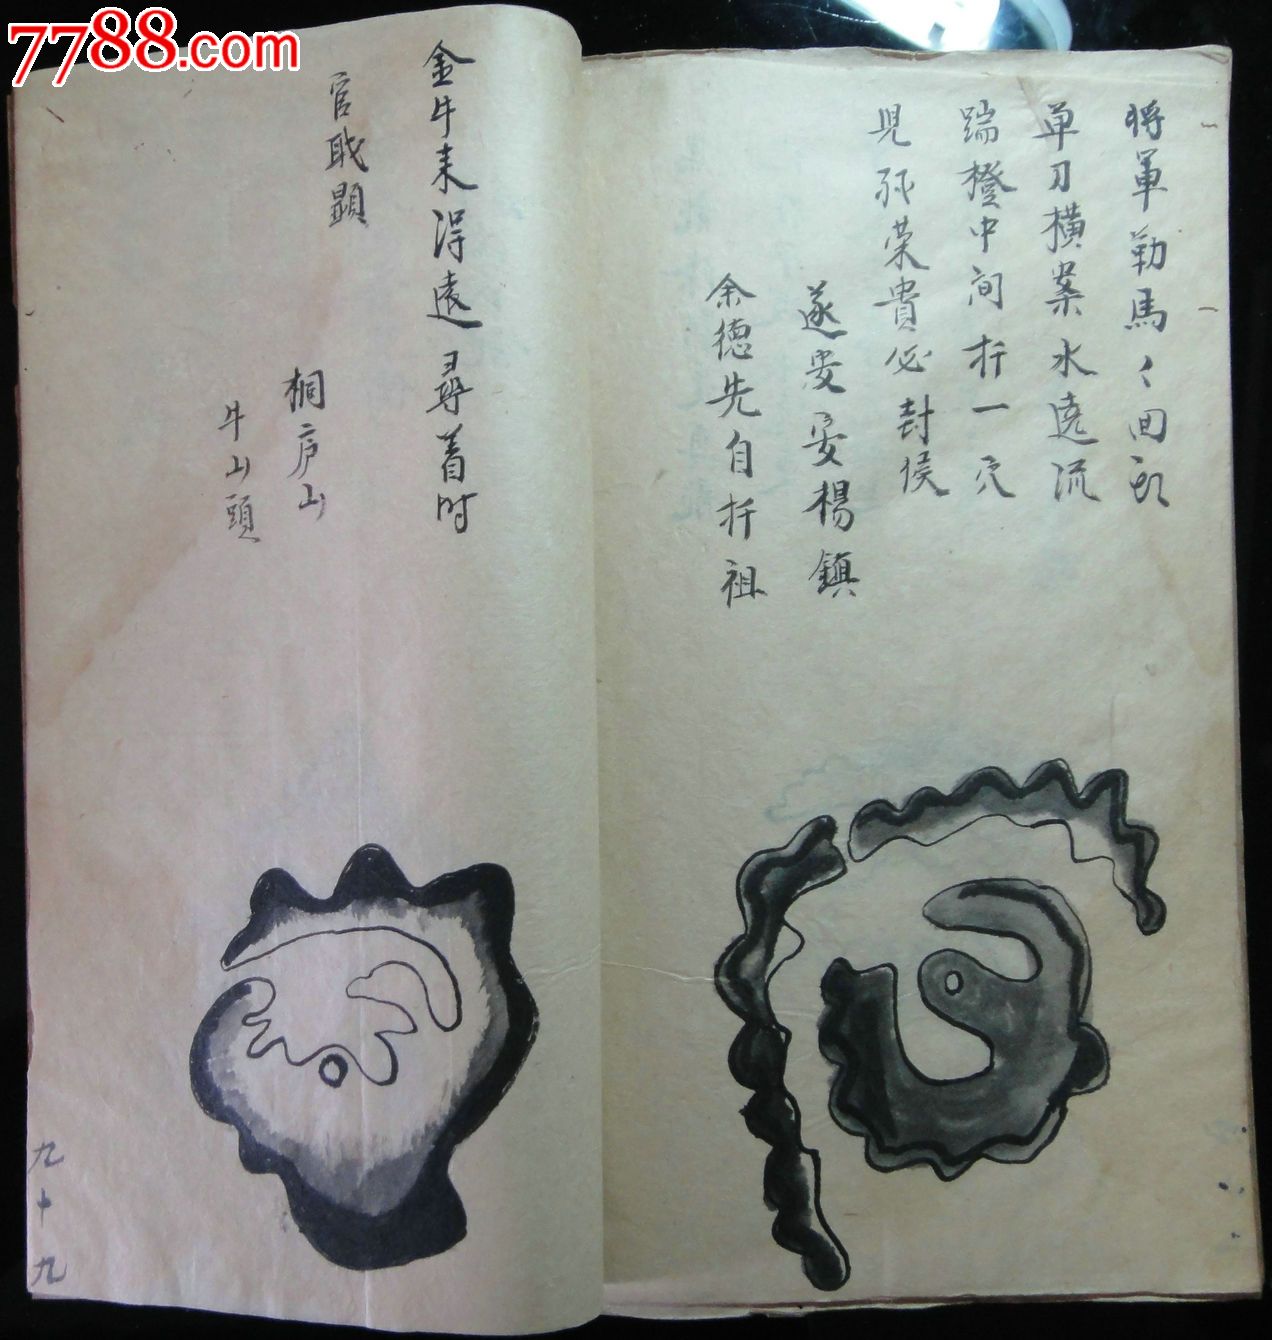 7788.com
將軍勒馬〻回頭
单刀橫案水遶流
踹橙中间扦一穴
児孫荣貴必封侯
遂安安楊鎮
余德先自扦祖
金牛来得遠尋着时
官职顕
桐庐山
牛山頭
九十九